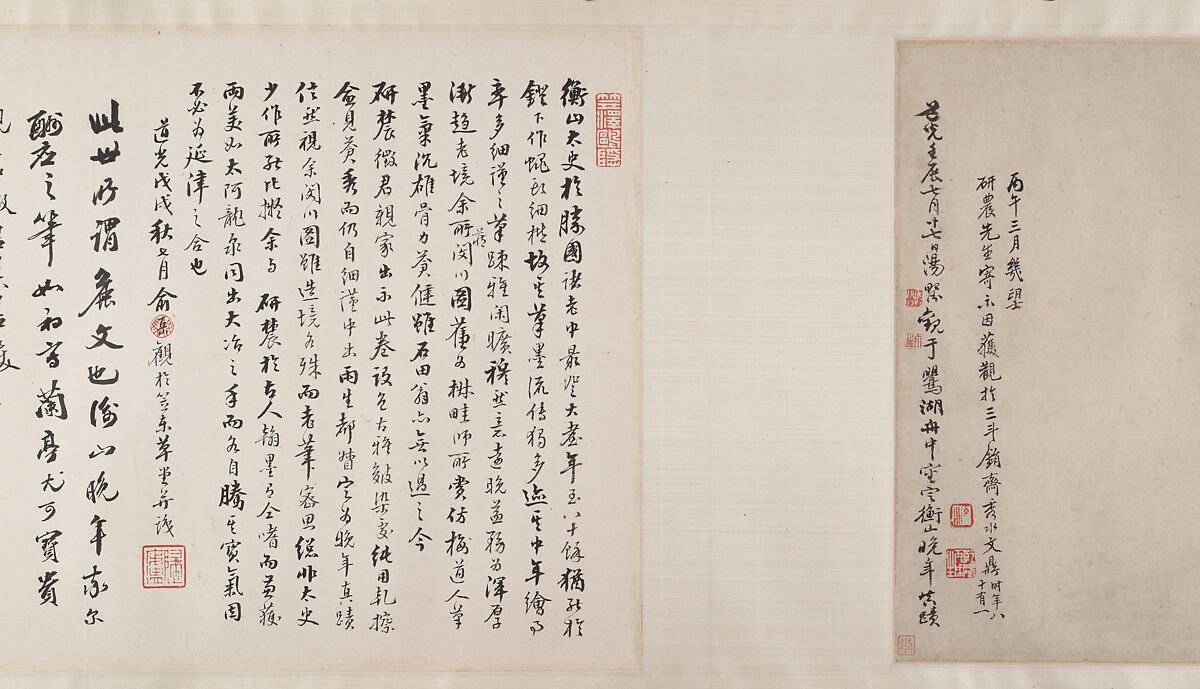 丙午三月幾望
研農先生寄示因獲觀於三斗銷齋秀水文鼎時年八十有一
道光壬辰七月十七湯 觀于鸎湖舟中審定衡山晚年真蹟
衡山太史於勝國諸老中最登大耋年至八十餘猶能於
鐙下作蠅頭細楷故其筆墨流傳獨多迹其中年繪事
率多細謹之筆疎雅閒曠穆然意遠晚益務為渾厚
漸趨老境余所藏閔川圖舊為楙畦師所賞仿梅道人筆
墨氣沉雄骨力蒼健雖石田翁亦無以過之今
研農徵君親家出示此卷設色古雅皴染處純用乾擦
僉見蒼秀而仍自細謹中出雨生都督定為晚年真蹟
信然視余閔川圖雖造境各殊而老筆密思總非太史
少作所能比擬余與 研農於古人翰墨有仝嗜而並獲
兩美如太阿龍泉同出大冶之手而各自騰其寶氣固
不必為延津之合也
道光戊戌秋七月俞岳觀於笠東草堂并識
此世所謂麤文也衡山晚年率爾
酬應之筆如初寫蘭亭尤可寶貴